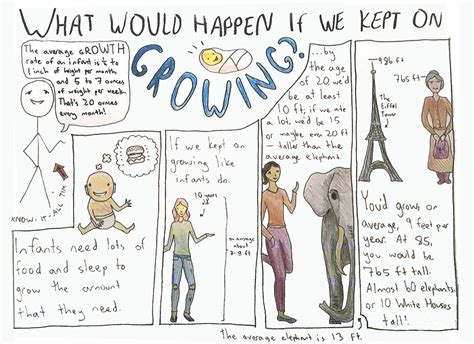 WHAT WOULD HAPPEN IF WE KEPT ON
GROWING?
The average GROWTH
rate of an infant is ½ to
1 inch of height per month
and 5 to 7 ounces
of weight per week.
That's 20 ounces
every month!
KNOW-IT-ALL TIM
Infants need lots
of food and sleep to
grow the amount
that they need.
If we kept on
growing like
infants do.
10 years
on average about
7-8 ft
...by
the age
of 20 we'd
be at least
10 ft; if we ate
a lot, we'd be 15
or maybe even 20 ft
- taller than the
average elephant.
the average elephant is 13 ft.
986 ft
The
Eiffel
Tower
765 ft
You'd grow, on
average, 9 feet per
year. At 85,
you would be
765 ft tall.
Almost 60 elephants,
or 10 White Houses
tall!